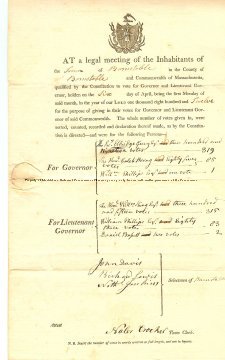 AT a legal meeting of the Inhabitants of
the Town of Barnstable in the County
of Barnstable and Commonwealth of Massachusetts,
qualified by the Constitution to vote for Governor and Lieutenant Gover-
nor, holden on the day of April, being the first Monday of
said month, in the year of our LORD one thousand eight hundred and Twelve
for the purpose of giving in their votes for Governor and Lieutenant Gover-
nor of said Commonwealth. The whole number of votes given in, were
sorted, counted, recorded and declaration thereof made, as by the Constitu-
tion is directed—and were for the following Persons—
Elbridge Gerry Esq three hundred and
votes 319
For Governor
Caleb Strong eighty five
votes 85
Phillips Esq one vote 1
King Esq three
hundred and fifteen votes 315
For Lieutenant
Governor
William Phillips Esq Eighty
three votes 83
Daniel two votes 2
John Davis
Richard Lewis
Selectmen of Barnstable
Attest
Nabor Crocker Town Clerk
N. B.